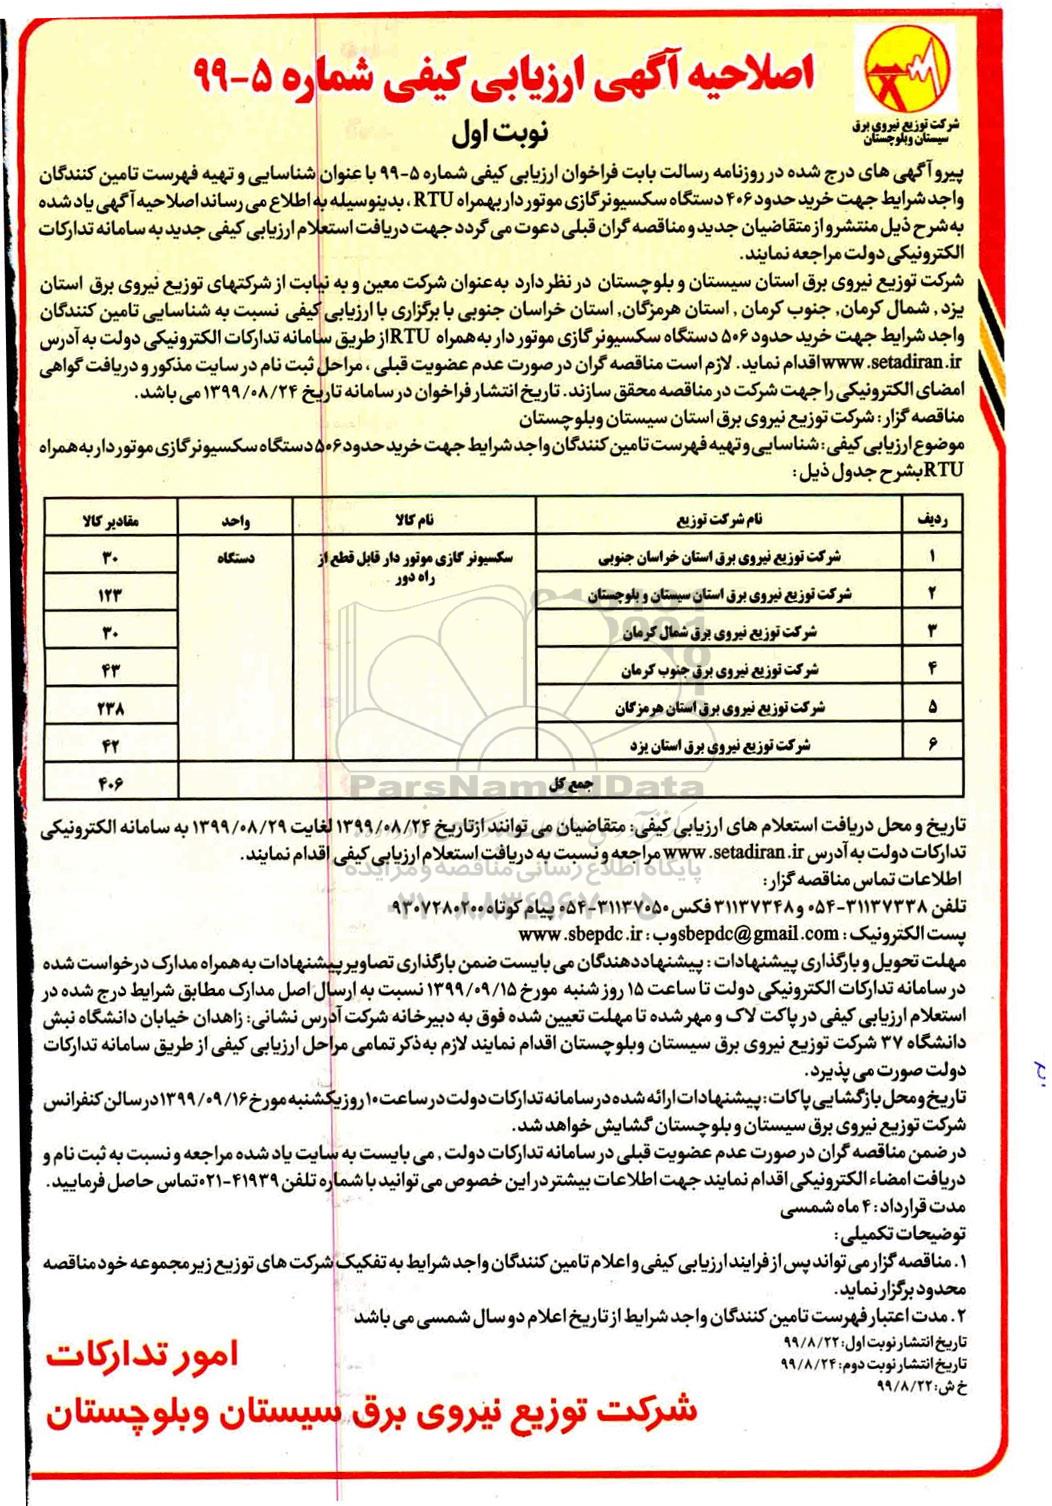 اصلاحیه آگهی ارزیابی کیفی شماره ۵-۹۹
شرکت توزیع نیروی برق
سیستان وبلوچستان
نوبت اول
پیرو آگهی های درج شده در روزنامه رسالت بابت فراخوان ارزیابی کیفی شماره ۵-۹۹ با عنوان شناسایی و تهیه فهرست تامین کنندگان
واجد شرایط جهت خرید حدود ۴۰۶ دستگاه سکسیونر گازی موتور دار بهمراه RTU ، بدینوسیله به اطلاع می رساند اصلاحیه آگهی یاد شده
به شرح ذیل منتشر و از متقاضیان جدید و مناقصه گران قبلی دعوت می گردد جهت دریافت استعلام ارزیابی کیفی جدید به سامانه تدارکات
الکترونیکی دولت مراجعه نمایند.
شرکت توزیع نیروی برق استان سیستان و بلوچستان در نظر دارد به عنوان شرکت معین و به نیابت از شرکتهای توزیع نیروی برق استان
یزد , شمال کرمان, جنوب کرمان , استان هرمزگان, استان خراسان جنوبی با برگزاری با ارزیابی کیفی نسبت به شناسایی تامین کنندگان
واجد شرایط جهت خرید حدود ۵۰۶ دستگاه سکسیونر گازی موتور دار به همراه RTUاز طریق سامانه تدارکات الکترونیکی دولت به آدرس
www.setadiran.ir اقدام نماید. لازم است مناقصه گران در صورت عدم عضویت قبلی ، مراحل ثبت نام در سایت مذکور و دریافت گواهی
امضای الکترونیکی را جهت شرکت در مناقصه محقق سازند. تاریخ انتشار فراخوان در سامانه تاریخ ۱۳۹۹/۰۸/۲۴ می باشد.
مناقصه گزار : شرکت توزیع نیروی برق استان سیستان وبلوچستان
موضوع ارزیابی کیفی : شناسایی و تهیه فهرست تامین کنندگان واجد شرایط جهت خرید حدود ۵۰۶ دستگاه سکسیونر گازی موتور دار به همراه
RTUبشرح جدول ذیل :
ردیف نام شرکت توزیع نام کالا واحد مقادیر کالا
۱ شرکت توزیع نیروی برق استان خراسان جنوبی سکسیونر گازی موتور دار قابل قطع از راه دور دستگاه ۳۰
۲ شرکت توزیع نیروی برق استان سیستان و بلوچستان ۱۲۳
۳ شرکت توزیع نیروی برق شمال کرمان ۳۰
۴ شرکت توزیع نیروی برق جنوب کرمان ۴۳
۵ شرکت توزیع نیروی برق استان هرمزگان ۲۳۸
۶ شرکت توزیع نیروی برق استان یزد ۴۲
جمع کل ۴۰۶
ParsNamadData
تاریخ و محل دریافت استعلام های ارزیابی کیفی: متقاضیان می توانند ازتاریخ ۱۳۹۹/۰۸/۲۴ لغایت ۱۳۹۹/۰۸/۲۹ به سامانه الکترونیکی
تدارکات دولت به آدرس www.setadiran.ir مراجعه و نسبت به دریافت استعلام ارزیابی کیفی اقدام نمایند.
پایگاه اطلاع رسانی مناقصه و مزایده
اطلاعات تماس مناقصه گزار:
تلفن ۳۱۱۳۷۳۳۸-۰۵۴ و ۳۱۱۳۷۳۴۸ فکس ۳۱۱۳۷۰۵۰-۰۵۴ پیام کوتاه ۹۳۰۷۲۸۰۲۰۰
پست الکترونیک : sbepdc@gmail.com وب : www.sbepdc.ir
مهلت تحویل و بارگذاری پیشنهادات : پیشنهاددهندگان می بایست ضمن بارگذاری تصاویر پیشنهادات به همراه مدارک درخواست شده
در سامانه تدارکات الکترونیکی دولت تا ساعت ۱۵ روز شنبه مورخ ۱۳۹۹/۰۹/۱۵ نسبت به ارسال اصل مدارک مطابق شرایط درج شده در
استعلام ارزیابی کیفی در پاکت لاک و مهر شده تا مهلت تعیین شده فوق به دبیرخانه شرکت آدرس نشانی: زاهدان خیابان دانشگاه نبش
دانشگاه ۳۷ شرکت توزیع نیروی برق سیستان وبلوچستان اقدام نمایند لازم به ذکر تمامی مراحل ارزیابی کیفی از طریق سامانه تدارکات
دولت صورت می پذیرد.
تاریخ و محل بازگشایی پاکات : پیشنهادات ارائه شده در سامانه تدارکات دولت در ساعت ۱۰ روز یکشنبه مورخ ۱۳۹۹/۰۹/۱۶ در سالن کنفرانس
شرکت توزیع نیروی برق سیستان و بلوچستان گشایش خواهد شد.
در ضمن مناقصه گران در صورت عدم عضویت قبلی در سامانه تدارکات دولت , می بایست به سایت یاد شده مراجعه و نسبت به ثبت نام و
دریافت امضاء الکترونیکی اقدام نمایند جهت اطلاعات بیشتر در این خصوص می توانید با شماره تلفن ۴۱۹۳۹-۰۲۱تماس حاصل فرمایید.
مدت قرارداد : ۴ ماه شمسی
توضیحات تکمیلی :
۱. مناقصه گزار می تواند پس از فرایند ارزیابی کیفی و اعلام تامین کنندگان واجد شرایط به تفکیک شرکت های توزیع زیر مجموعه خود مناقصه
محدود برگزار نماید.
۲. مدت اعتبار فهرست تامین کنندگان واجد شرایط از تاریخ اعلام دو سال شمسی می باشد
تاریخ انتشار نوبت اول: ۹۹/۸/۲۲
تاریخ انتشار نوبت دوم: ۹۹/۸/۲۴
خ ش: ۹۹/۸/۲۲
امور تدارکات
شرکت توزیع نیروی برق سیستان وبلوچستان